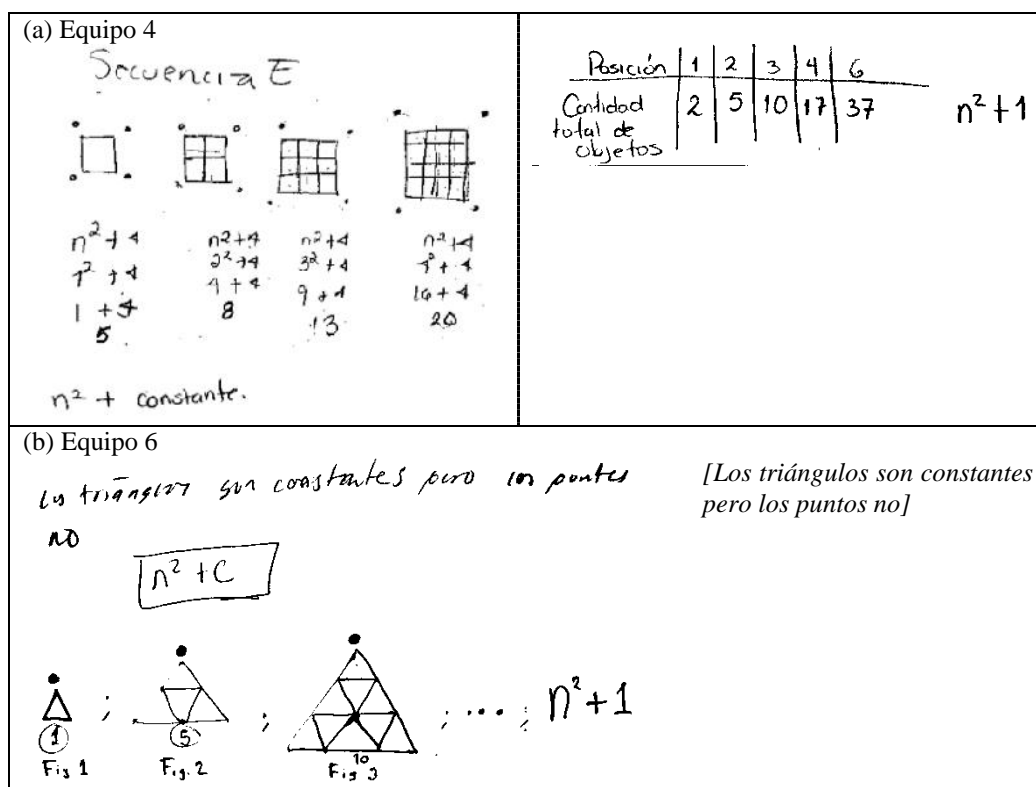 (a) Equipo 4
Secuencia E
n²+4 n²+4 n²+4 n²+4
1²+4 2²+4 3²+4 4²+4
1+4 4+4 9+4 16+4
5 8 13 20
n² + constante.
Posición 1 2 3 4 6
Cantidad total de objetos 2 5 10 17 37
n²+1
(b) Equipo 6
los triángulos son constantes pero los puntos
no
n²+C
[Los triángulos son constantes
pero los puntos no]
; ; ; ... ; n²+1
1 5 10
Fig 1 Fig. 2 Fig 3